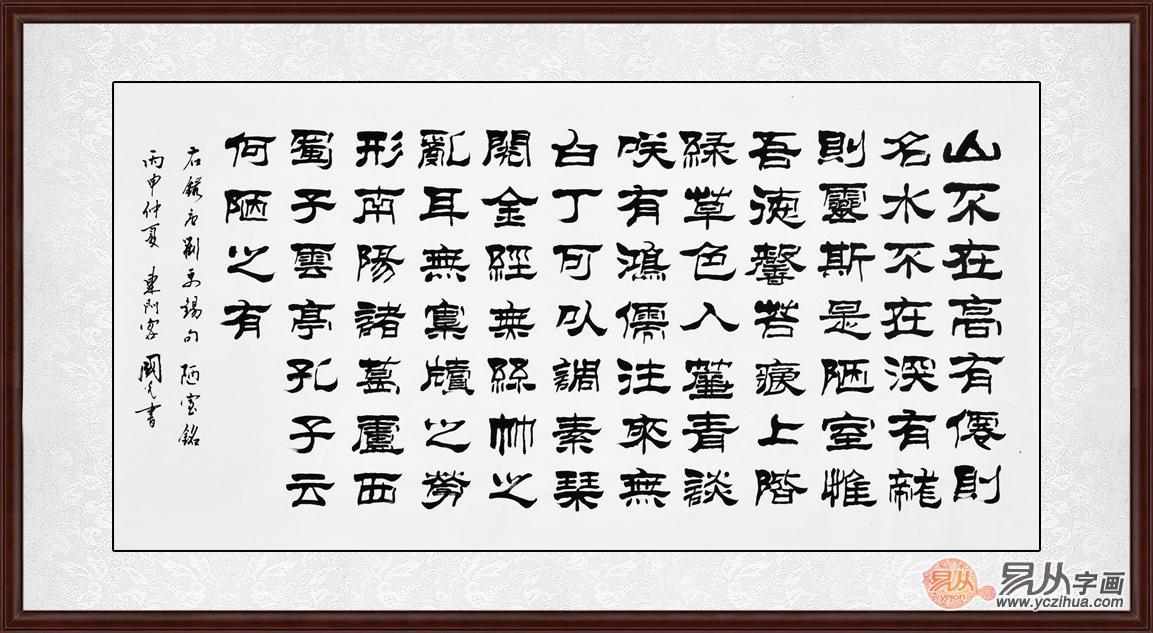 山不在高有僊則
名水不在深有龍
則靈斯是陋室惟
吾德馨苔痕上階
綠草色入簾青談
咲有鴻儒往來無
白丁可以調素琴
閱金經無絲竹之
亂耳無案牘之勞
形南陽諸葛廬西
蜀子雲亭孔子云
何陋之有
右錄唐劉禹錫句 陋室銘
丙申仲夏 東門客 國 書
易从
易从字画
www.yczihua.com